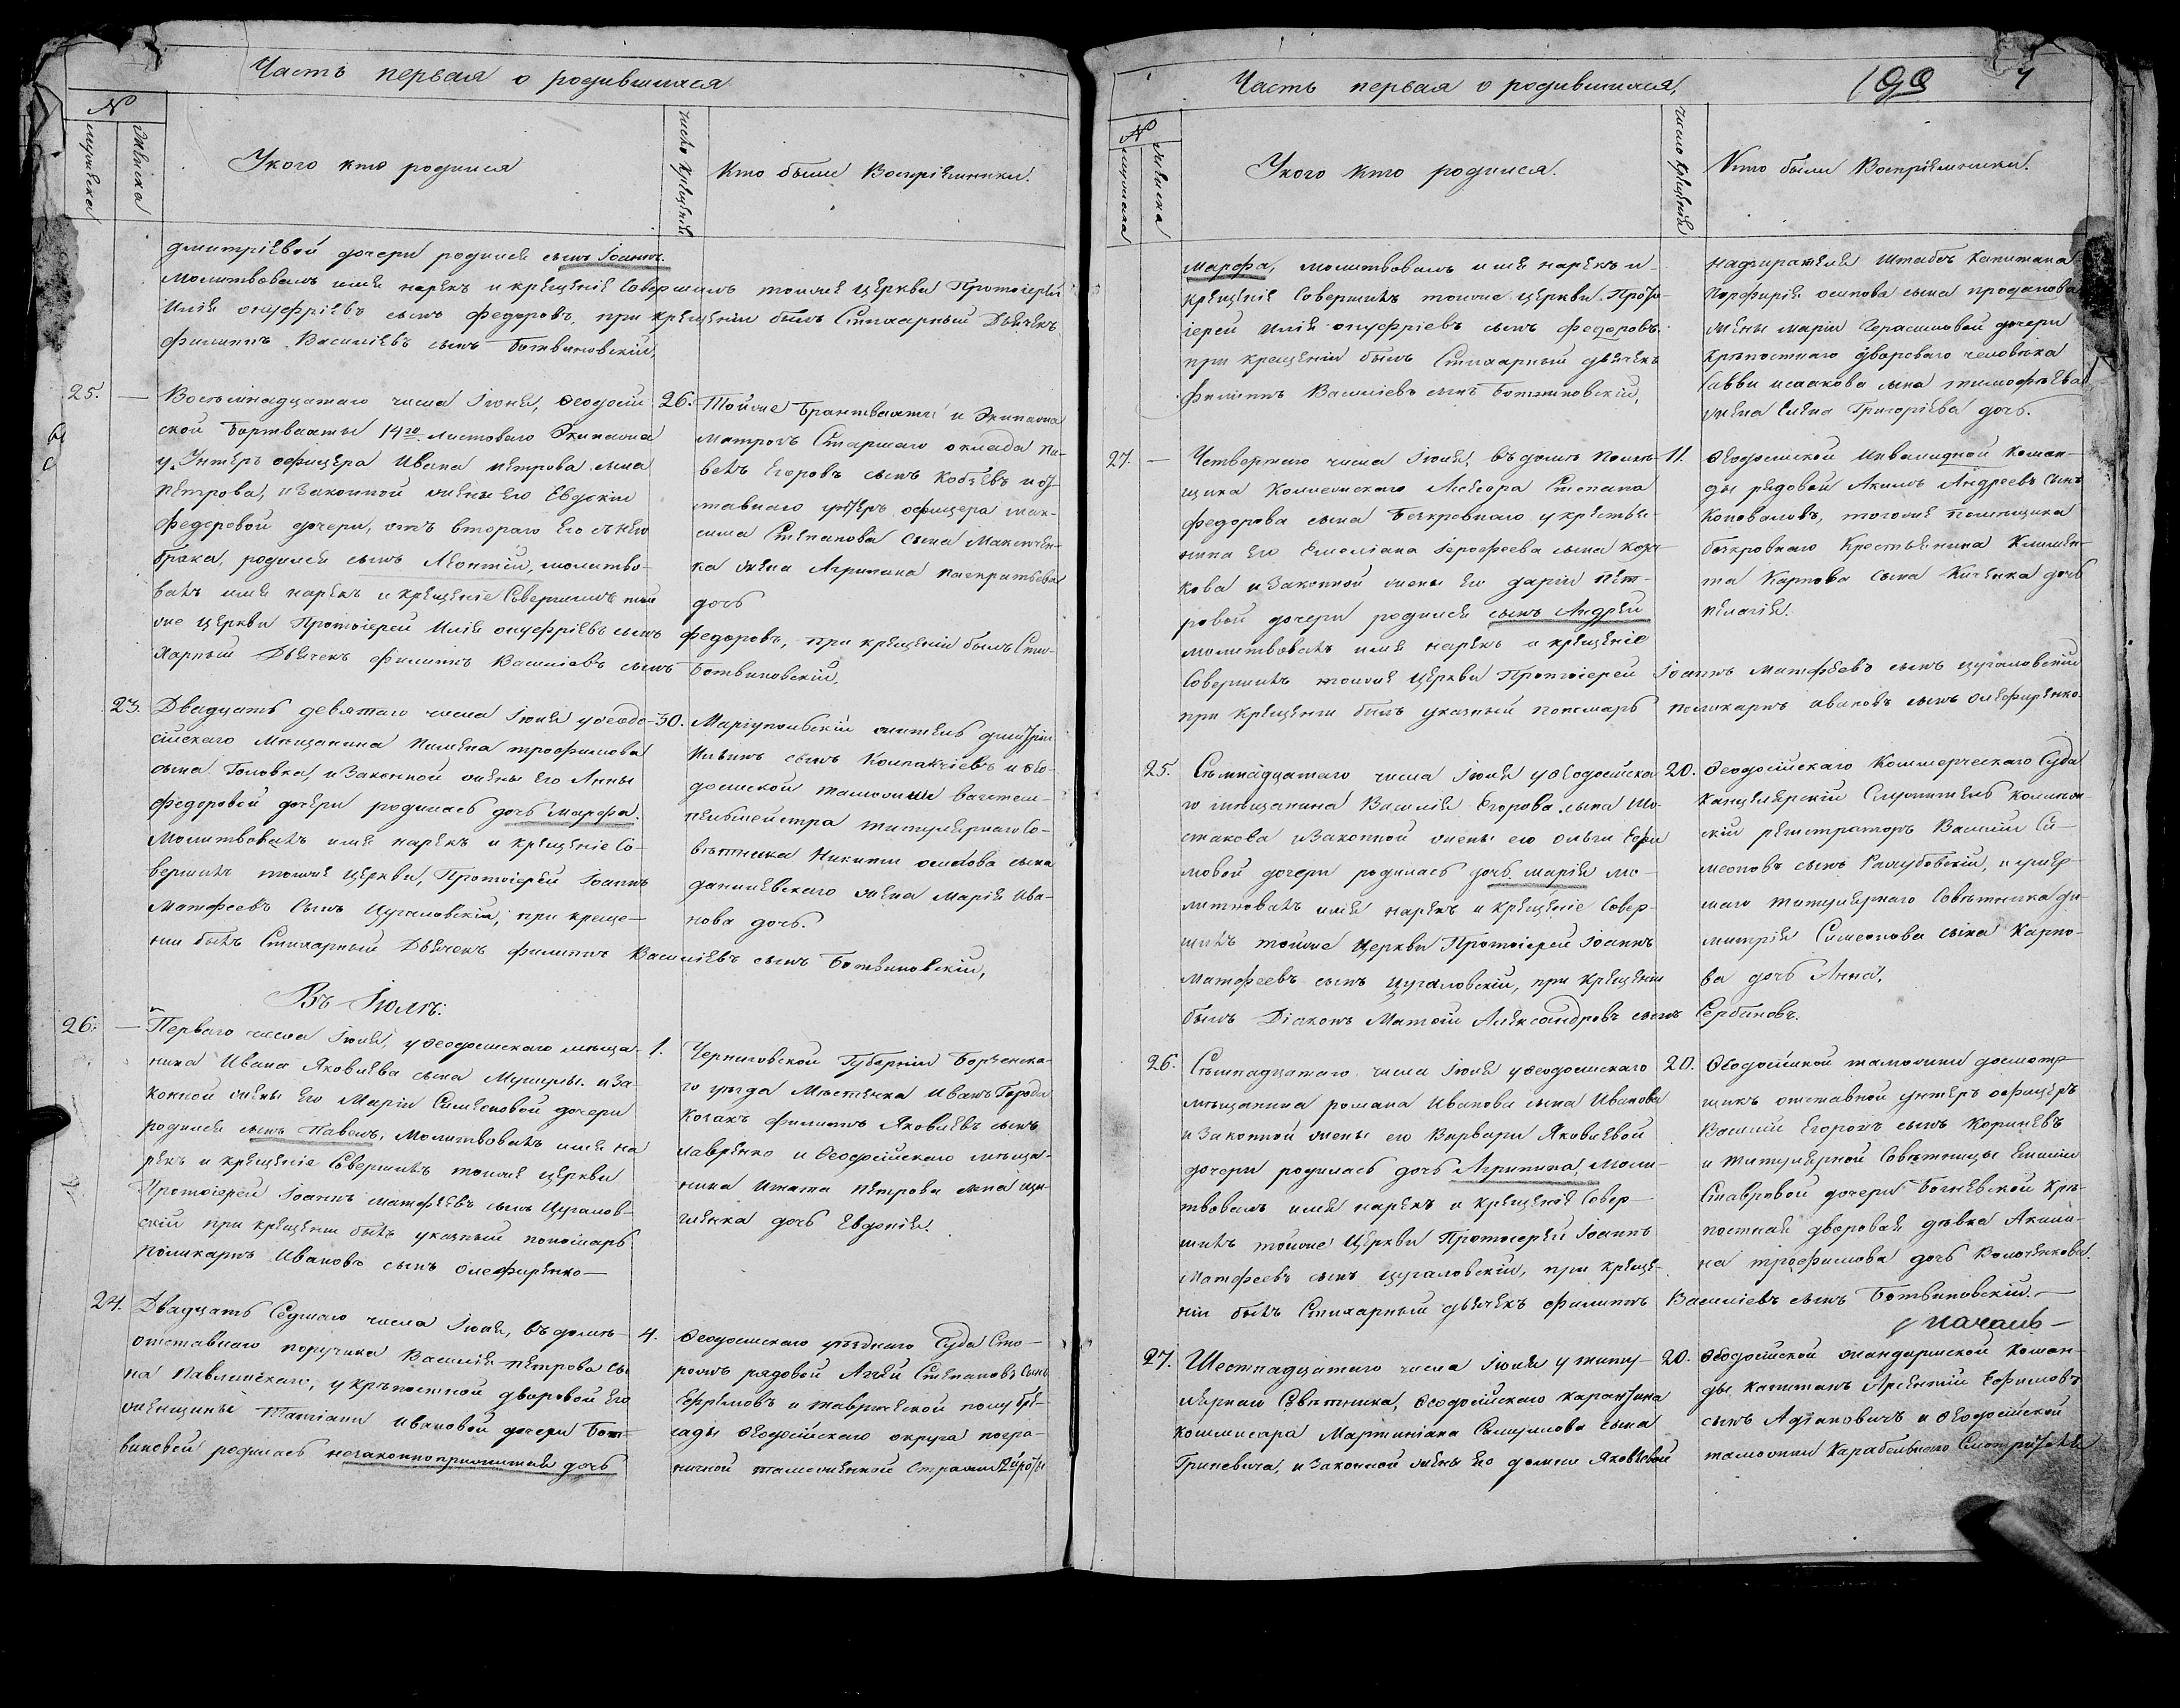 Часть первая о родившихся
N
мужеска
женска
У кого кто родился
число крещенія
Кто были Воспріемники.
дмитріевой дочери родился сынъ Іоаннъ.
Молитвовалъ имя нарекъ и крещеніе Совершилъ тойже Церкви Протоіерей
Илія онуфріевъ сынъ федоровъ, при крещеніи былъ Стихарный Дьячекъ
филиппъ Василіевъ сынъ Ботвиновскій.
25. — Восемнадцатаго числа Іюня, Ѳеодосій-
ской Бортвахты 14го ластоваго Экипажа
у Унтеръ офицера Ивана петрова сына
Петрова, и Законной жены его Евдокіи
федоровой дочери, отъ втораго его съ нею
брака, родился сынъ Леонтій, молитво-
валъ имя нарекъ и крещеніе Совершилъ той
же Церкви Протоіерей Илія онуфріевъ сынъ федоровъ, при крещеніи былъ Сти-
харный Дьячекъ филиппъ Василіевъ сынъ Ботвиновскій.
26. Тойже Брантвахты и Экипажа
матрозъ Старшаго оклада Па-
велъ Егоровъ сынъ Кобцевъ и от-
ставнаго унтеръ офицера мак-
сима Степанова Сына Максимен-
ка жена Агрипина панкратьева
дочь
23. Двадцать девятаго числа Іюня у Ѳеодо-
сійскаго Мещанина Пимена трофимова
сына Головка, и Законной жены его Анны
федоровой дочери родилась дочь марфа.
Молитвовалъ имя нарекъ и крещеніе Со-
вершилъ тойже Церкви, Протоіерей Іоаннъ
Матфеевъ Сынъ Цугаловскій, при креще-
ніи былъ Стихарный Дьячекъ филиппъ Василіевъ сынъ Ботвиновскій,
30. Маріупольскій житель дмитрій
Ильинъ сынъ Компакчіевъ и Ѳео-
досійской таможни вагштем-
пельмейстра титулярнаго Со-
вѣтника Никиты осипова сына
данилевскаго жена Марія Ива-
нова дочь.
Въ Іюлѣ:
26. — Перваго числа Іюля, у Ѳеодосійскаго мѣща-
нина Ивана Яковлева сына Мушулы. и За-
конной жены его Маріи Симеоновой дочери
родился сынъ Павелъ, Молитвовалъ имя на
рекъ и крещеніе Совершилъ тойже Церкви
Протоіерей Іоаннъ матфеевъ сынъ Цугалов-
скій при крещеніи былъ указный пономарь
поликарпъ Ивановъ сынъ Олефиренко —
1. Черниговской Губерніи Борзенска-
го уѣзда Мѣстечка Иванъ Города
Козакъ филиппъ Яковлевъ сынъ
лавренко и Ѳеодосійскаго мѣща-
нина Игната Петрова сына щи-
гленка дочь Евдокія.
24. Двадцать Седмаго числа Іюня, въ домѣ
отставнаго поручика Василія Петрова сы
на Павлинскаго, у крѣпостной дворовой его
женщины Татіаны Ивановой дочери Бот-
виновой родилась незаконноприжитая дочь
4. Ѳеодосійскаго уѣзднаго Суда Сто-
рожъ рядовой Алѣй Степановъ Сынъ
Ефремовъ и таврической полубри-
гады Ѳеодосійскаго округа погра-
ничной таможенной Стражи
Часть первая о родившихся,
190
7
N
мужеска
женска
У кого кто родился.
число крещенія
Кто были Воспріемники.
марфа, молитвовалъ имя нарекъ и
крещеніе Совершилъ тойже церкви Прото-
іерей Илія онуфріевъ сынъ федоровъ.
при крещеніи былъ Стихарный дьячекъ
филиппъ Василіевъ сынъ Ботвиновскій,
надзирателя Штабсъ Капитана
Порфирія осипова сына проданова
жены маріи Герасимовой дочери
крѣпостнаго двороваго человѣка
Саввы исаакова сына тимофѣева
жена Елена Григоріева дочь.
27. — Четвертаго числа Іюля, въ домѣ помѣ-
щика Коллежскаго Асесора Степана
федорова сына Безкровнаго у крестья-
нина его Емеліана Іерофеева сына коза-
кова и Законной жены его даріи Пет-
ровой дочери родился сынъ Андрей
молитвовалъ имя нарекъ и крещеніе
Совершилъ тойже Церкви Протоіерей Іоаннъ матфеевъ сынъ Цугаловскій
при крещеніи былъ указный пономарь поликарпъ ивановъ сынъ Олефиренко.
11. Ѳеодосійской Инвалидной Коман-
ды рядовой Акимъ Андреевъ Сынъ
Коноваловъ, тогоже помещика
безкровнаго Крестьянина Климен-
та Карпова сына Киченка дочь
пелагія.
25. Семнадцатаго числа Іюля у Ѳеодосійска
го мѣщанина Василія Егорова сына Шо-
стакова и Законной жены его ольги Ефи
мовой дочери родилась дочь марія мо-
литвовалъ имя нарекъ и крещеніе Совер-
шилъ тойже Церкви Протоіерей Іоаннъ
Матфеевъ сынъ цугаловскій, при крещеніи
былъ Діаконъ Матвѣй Александровъ сынъ Сербиновъ.
20. Ѳеодосійскаго Коммерческаго Суда
Канцелярскій Служитель колежск
скій регистраторъ Василій Си-
меоновъ сынъ Голубовскій, и умер-
шаго титулярнаго Совѣтника ди-
митрія Симеонова сына Карпо-
ва дочь Анна,
26. Семнадцатаго числа Іюля у Ѳеодосійскаго
мѣщанина романа Иванова сына Иванова
и Законной жены его Варвары Яковлевой
дочери родилась дочь Агрипина, моли-
твовалъ имя нарекъ и крещеніе Совер-
шилъ тойже Церкви Протоіерей Іоаннъ
Матфеевъ сынъ цугаловскій, при креще-
ніи былъ Стихарный дьячекъ филиппъ Василіевъ сынъ Ботвиновскій. —
20. Ѳеодосійской таможни досмотр-
щикъ отставной унтеръ офицеръ
Василій Егоровъ сынъ Кориневъ
и титулярной Совѣтницы Емиліи
Ставровой дочери Богневской Крѣ-
постная дворовая дѣвка Акили-
на трофимова дочь Волоченкова.
27. Шестнадцатаго числа Іюля у титу-
лярнаго Совѣтника, Ѳеодосійскаго карантина
коммисара Мартиніана Самуилова сына
Гриневича, и Законной жены его домны Яковлевой
начальн
20. Ѳеодосійской жандармской Коман-
ды, капитанъ Арсентій Ефимовъ
сынъ Адзановичъ и Ѳеодосійской
таможни Карабельнаго Смотрителя